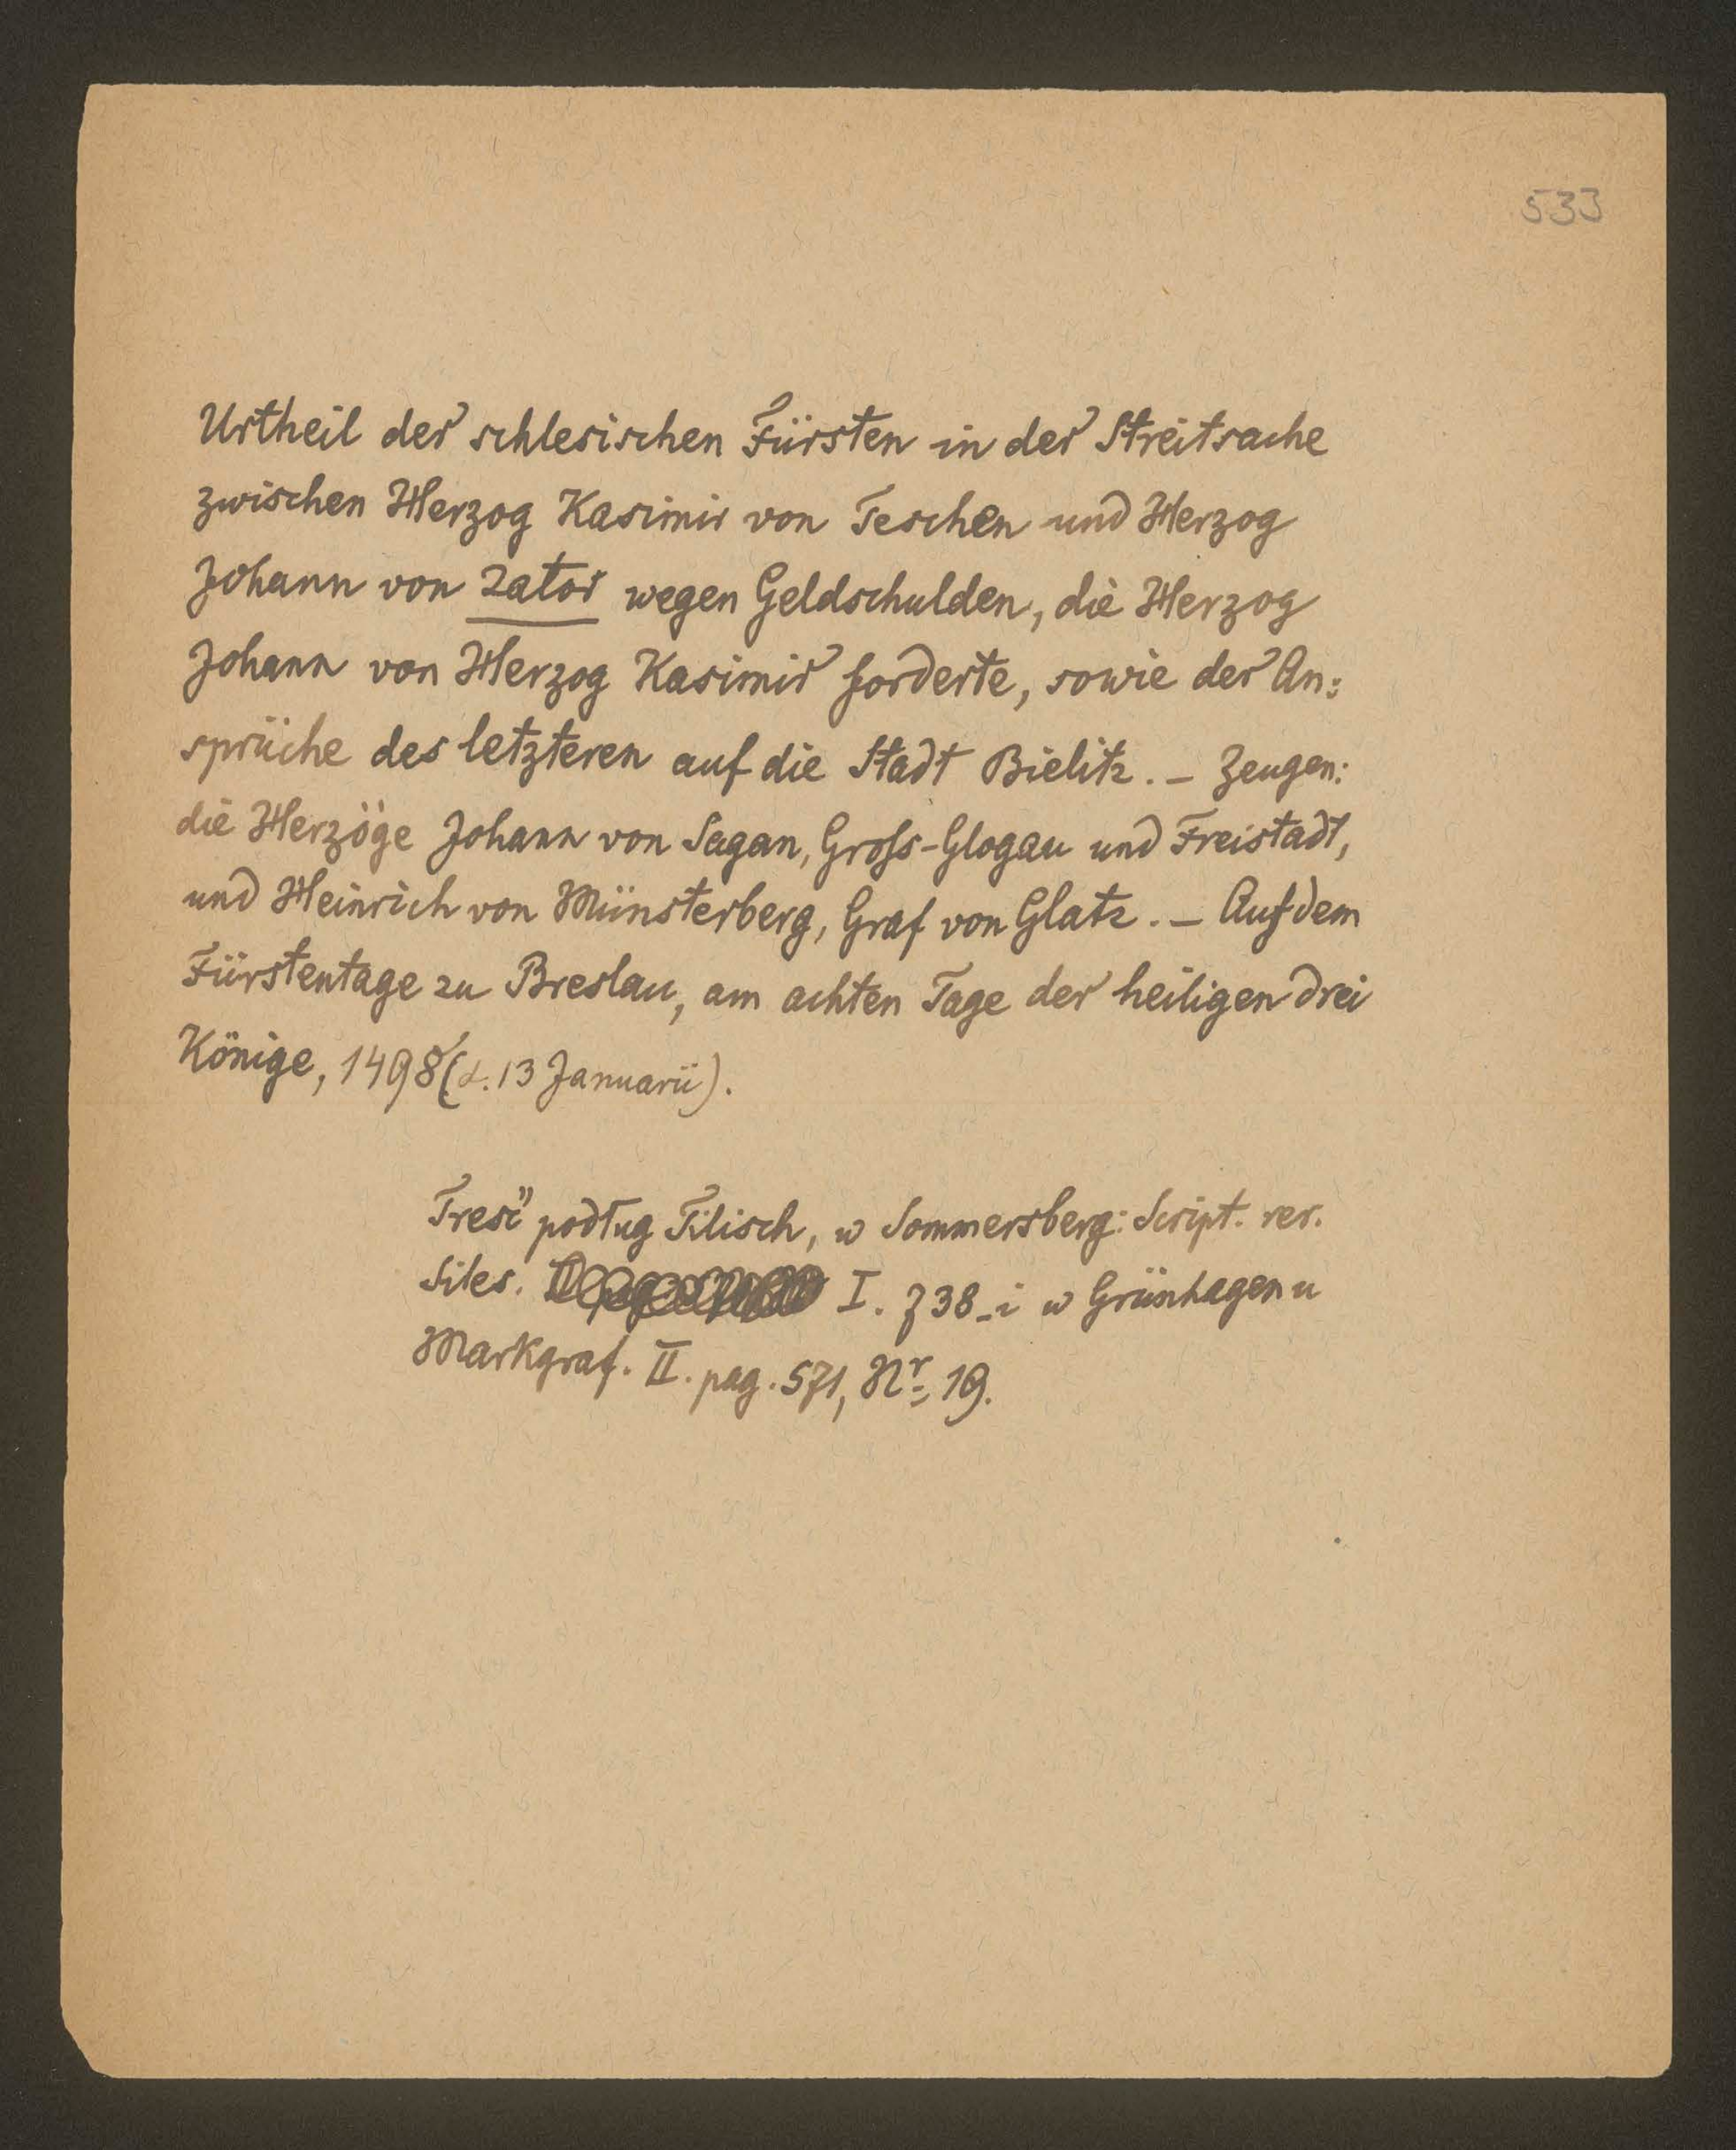 533
Urtheil der schlesischen Fürsten in der Streitsache
zwischen Herzog Kasimir von Teschen und Herzog
Johann von Zator wegen Geldschulden, die Herzog
Johann von Herzog Kasimir forderte, sowie der An:
sprüche des letzteren auf die Stadt Bielitz. – Zeugen:
die Herzöge Johann von Sagan, Gross-Glogau und Freistadt,
und Heinrich von Münsterberg, Graf von Glatz. – Auf dem
Fürstentage zu Breslau, am achten Tage der heiligen drei
Könige, 1498 (d. 13 Januarii).
Treść podług Tilisch, w Sommersberg: Script. rer.
Siles. I. 738 – i w Grünhagen u
Markgraf. II. pag. 571, Nr. 19.